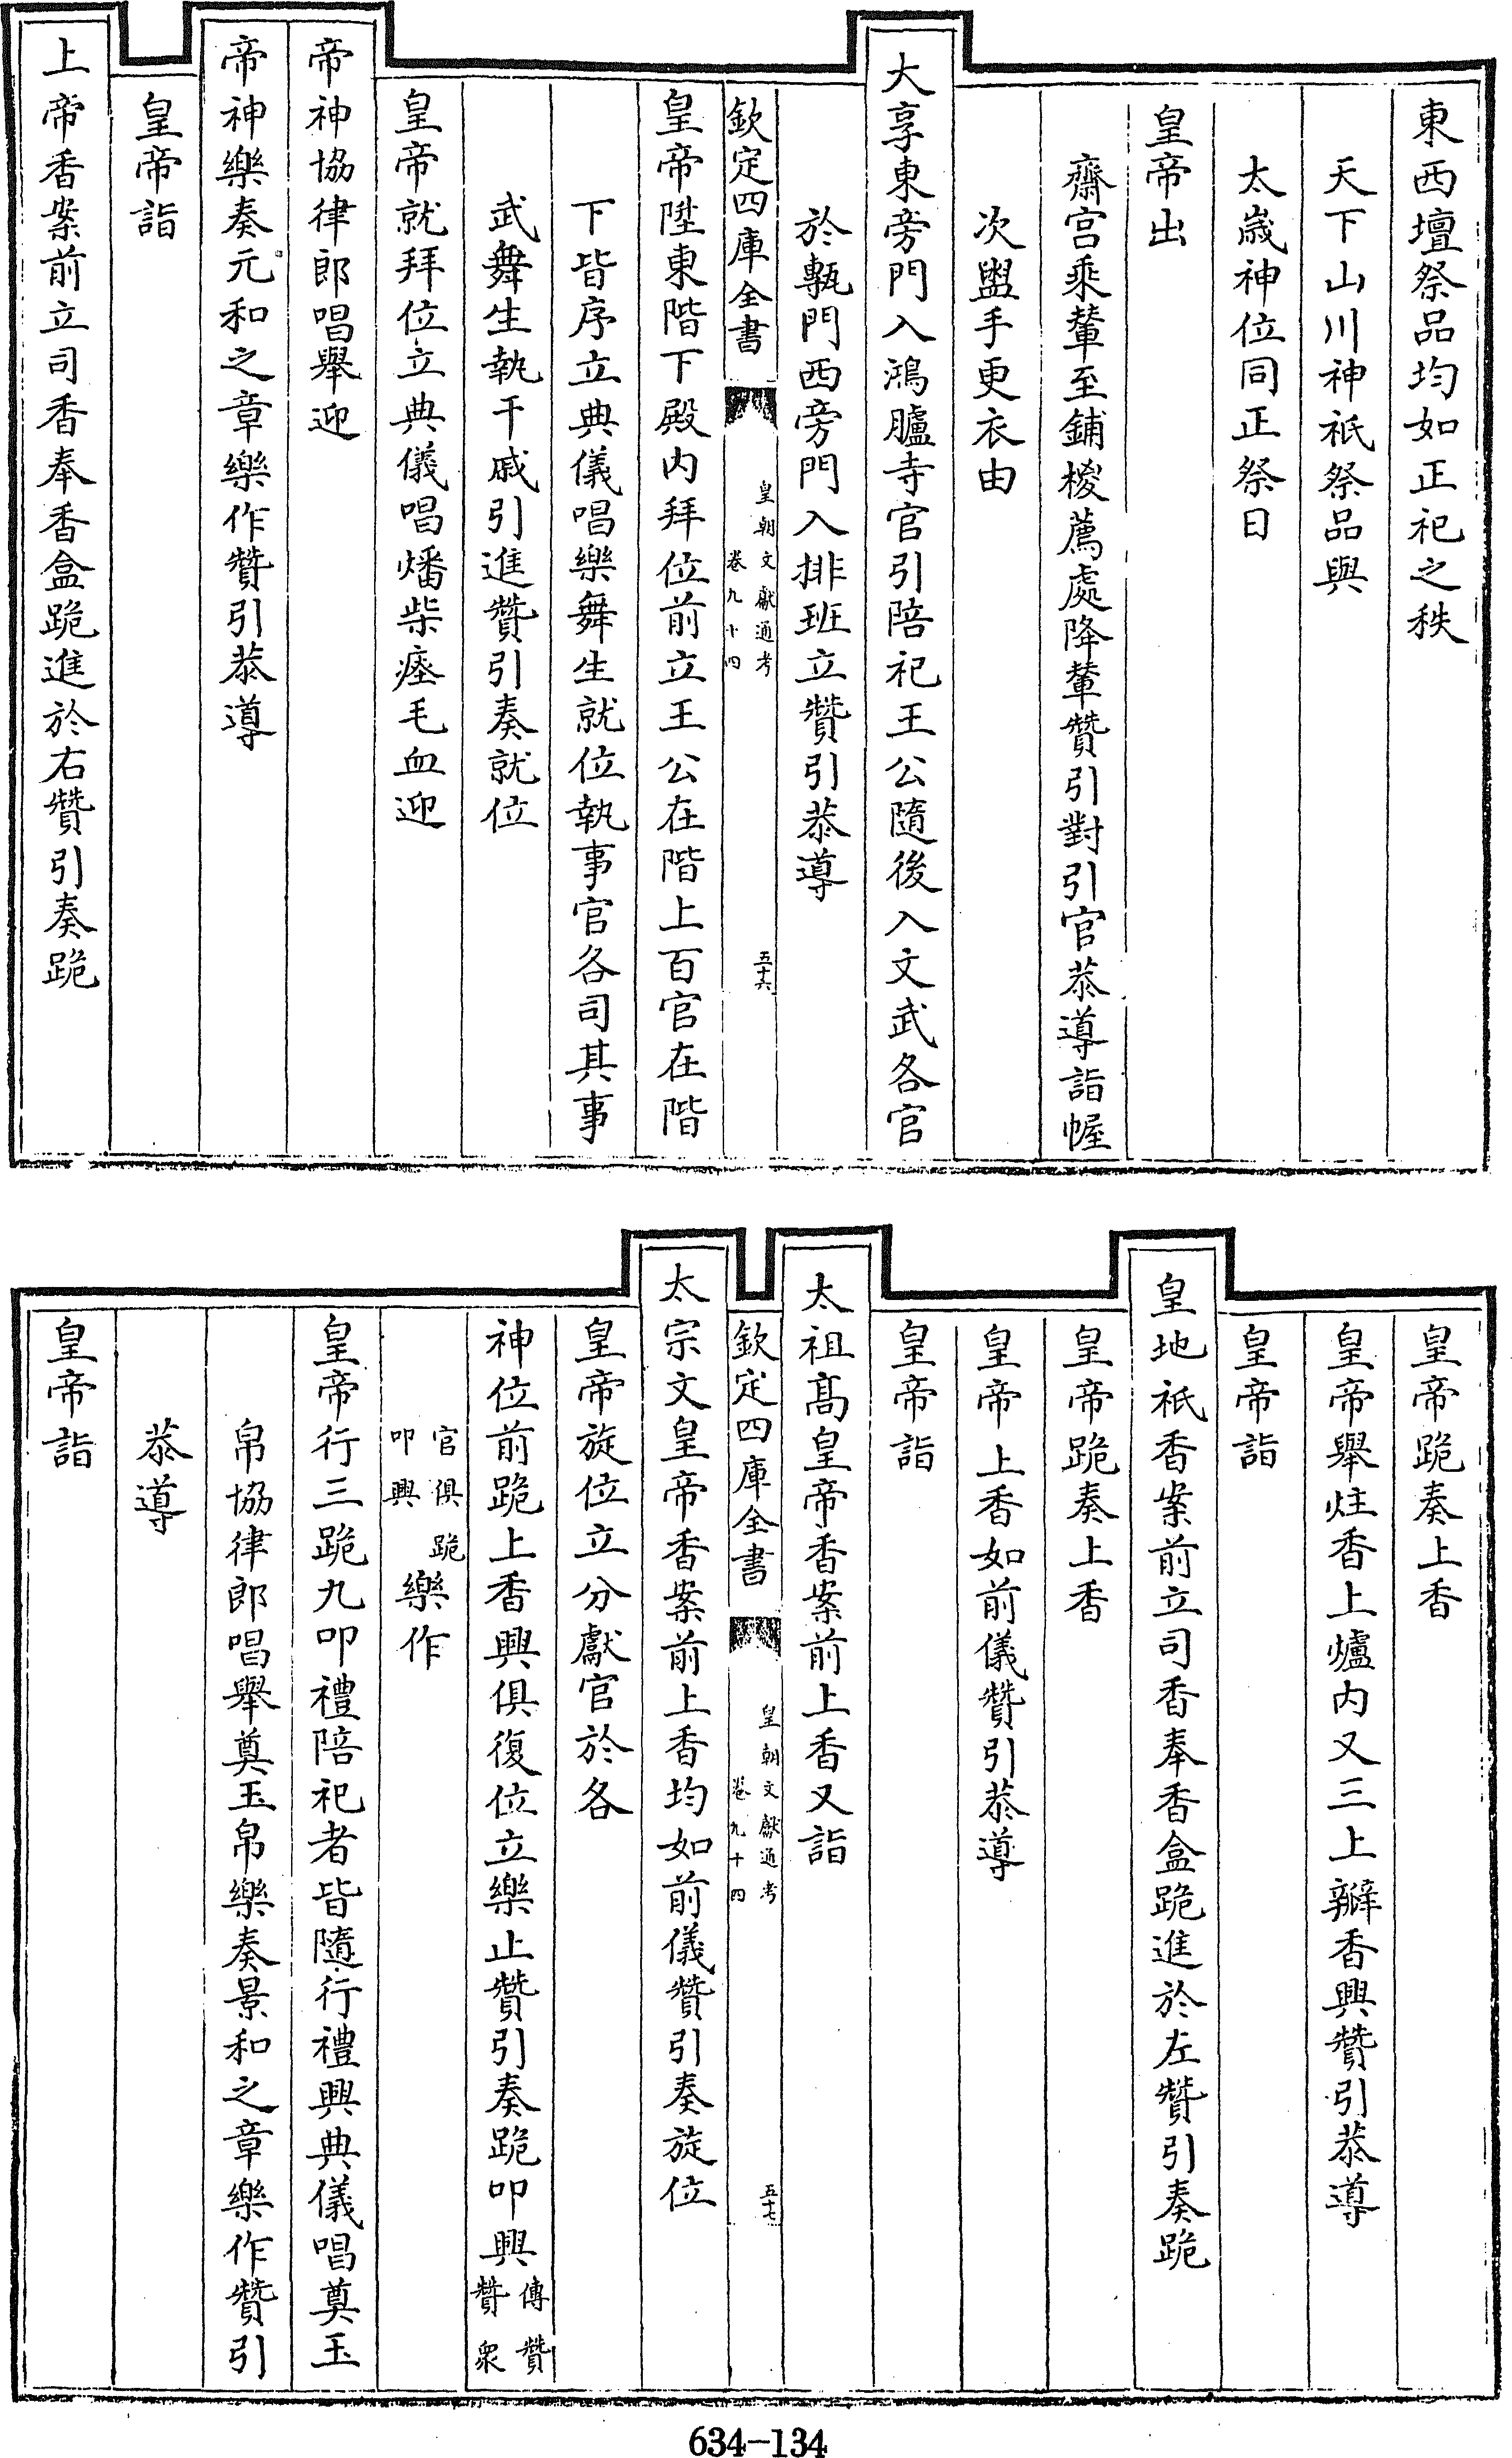 東西壇祭品均如正祀之秩
天下山川神祇祭品與
太歲神位同正祭日
皇帝出
齋宮乘輦至鋪椶薦處降輦贊引對引官恭導詣幄
次盥手更衣由
大享東旁門入鴻臚寺官引陪祀王公隨後入文武各官
於甎門西旁門入排班立贊引恭導
欽定四庫全書
皇朝文獻通考
卷九十四
五十六
皇帝陞東階下殿内拜位前立王公在階上百官在階
下皆序立典儀唱樂舞生就位執事官各司其事
武舞生執干戚引進贊引奏就位
皇帝就拜位立典儀唱燔柴瘞毛血迎
帝神協律郎唱舉迎
帝神樂奏元和之章樂作贊引恭導
皇帝詣
上帝香案前立司香奉香盒跪進於右贊引奏跪
皇帝跪奏上香
皇帝舉炷香上爐内又三上瓣香興贊引恭導
皇帝詣
皇地祇香案前立司香奉香盒跪進於左贊引奏跪
皇帝跪奏上香
皇帝上香如前儀贊引恭導
皇帝詣
太祖高皇帝香案前上香又詣
欽定四庫全書
皇朝文獻通考
卷九十四
五十七
太宗文皇帝香案前上香均如前儀贊引奏旋位
皇帝旋位立分獻官於各
神位前跪上香興俱復位立樂止贊引奏跪叩興傳贊贊衆
官俱跪叩興樂作
皇帝行三跪九叩禮陪祀者皆隨行禮興典儀唱奠玉
帛協律郎唱舉奠玉帛樂奏景和之章樂作贊引
恭導
皇帝詣
634-134